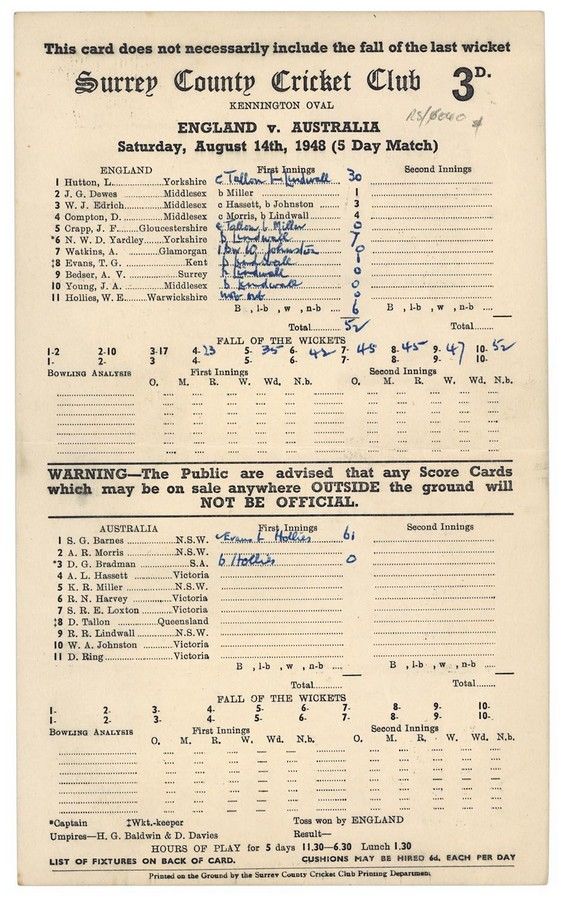 This card does not necessarily include the fall of the last wicket
Surrey County Cricket Club 3D.
KENNINGTON OVAL
ENGLAND v. AUSTRALIA
Saturday, August 14th, 1948 (5 Day Match)
ENGLAND First Innings Second Innings
1 Hutton, L. Yorkshire c Tallon b Lindwall 30
2 J. G. Dewes Middlesex b Miller 1
3 W. J. Edrich Middlesex c Hassett, b Johnston 3
4 Compton, D. Middlesex c Morris, b Lindwall 4
5 Crapp, J. F. Gloucestershire c Tallon b Miller 0
*6 N. W. D. Yardley Yorkshire b Lindwall 7
7 Watkins, A. Glamorgan lbw b Johnston 0
‡8 Evans, T. G. Kent b Lindwall 1
9 Bedser, A. V. Surrey b Lindwall 0
10 Young, J. A. Middlesex b Lindwall 0
11 Hollies, W. E. Warwickshire not out 0
B , l-b , w , n-b ... 6 B , l-b , w , n-b ...
Total 52 Total
FALL OF THE WICKETS
1-2 2-10 3-17 4-23 5-35 6-42 7-45 8-45 9-47 10-52
1- 2- 3 4- 5- 6- 7- 8- 9- 10-
BOWLING ANALYSIS First Innings Second Innings
O. M. R. W. Wd. N.b. O. M. R. W. Wd. N.b.
WARNING—The Public are advised that any Score Cards
which may be on sale anywhere OUTSIDE the ground will
NOT BE OFFICIAL.
AUSTRALIA First Innings Second Innings
1 S. G. Barnes N.S.W. c Evans b Hollies 61
2 A. R. Morris N.S.W.
*3 D. G. Bradman S.A. b Hollies 0
4 A. L. Hassett Victoria
5 K. R. Miller N.S.W.
6 R. N. Harvey Victoria
7 S. R. E. Loxton Victoria
‡8 D. Tallon Queensland
9 R. R. Lindwall N.S.W.
10 W. A. Johnston Victoria
11 D. Ring Victoria
B , l-b , w , n-b ... B , l-b , w , n-b ...
Total Total
FALL OF THE WICKETS
1- 2- 3- 4- 5- 6- 7- 8- 9- 10-
1- 2- 3- 4- 5- 6- 7- 8- 9- 10-
BOWLING ANALYSIS First Innings Second Innings
O. M. R. W. Wd. N.b. O. M. R. W. Wd. N.b.
*Captain ‡Wkt.-keeper Toss won by ENGLAND
Umpires—H. G. Baldwin & D. Davies Result—
HOURS OF PLAY for 5 days 11.30—6.30 Lunch 1.30
LIST OF FIXTURES ON BACK OF CARD. CUSHIONS MAY BE HIRED 6d. EACH PER DAY
Printed on the Ground by the Surrey County Cricket Club Printing Department